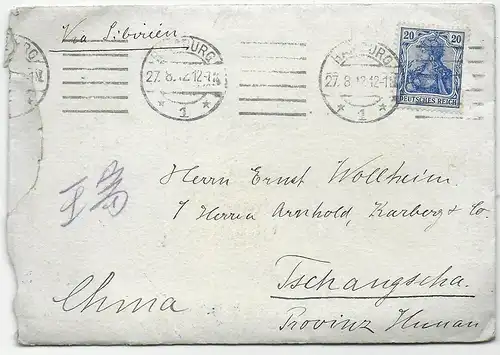 Via Sibirien
HAMBURG
27.8.12.12-1N
* 1 *
HAMBURG
27.8.12.12-1N
* 1 *
20 20
DEUTSCHES REICH
Herrn Ernst Wollheim.
Arnhold, Karberg & Co.
Tschangscha.
China
Provinz Hunan